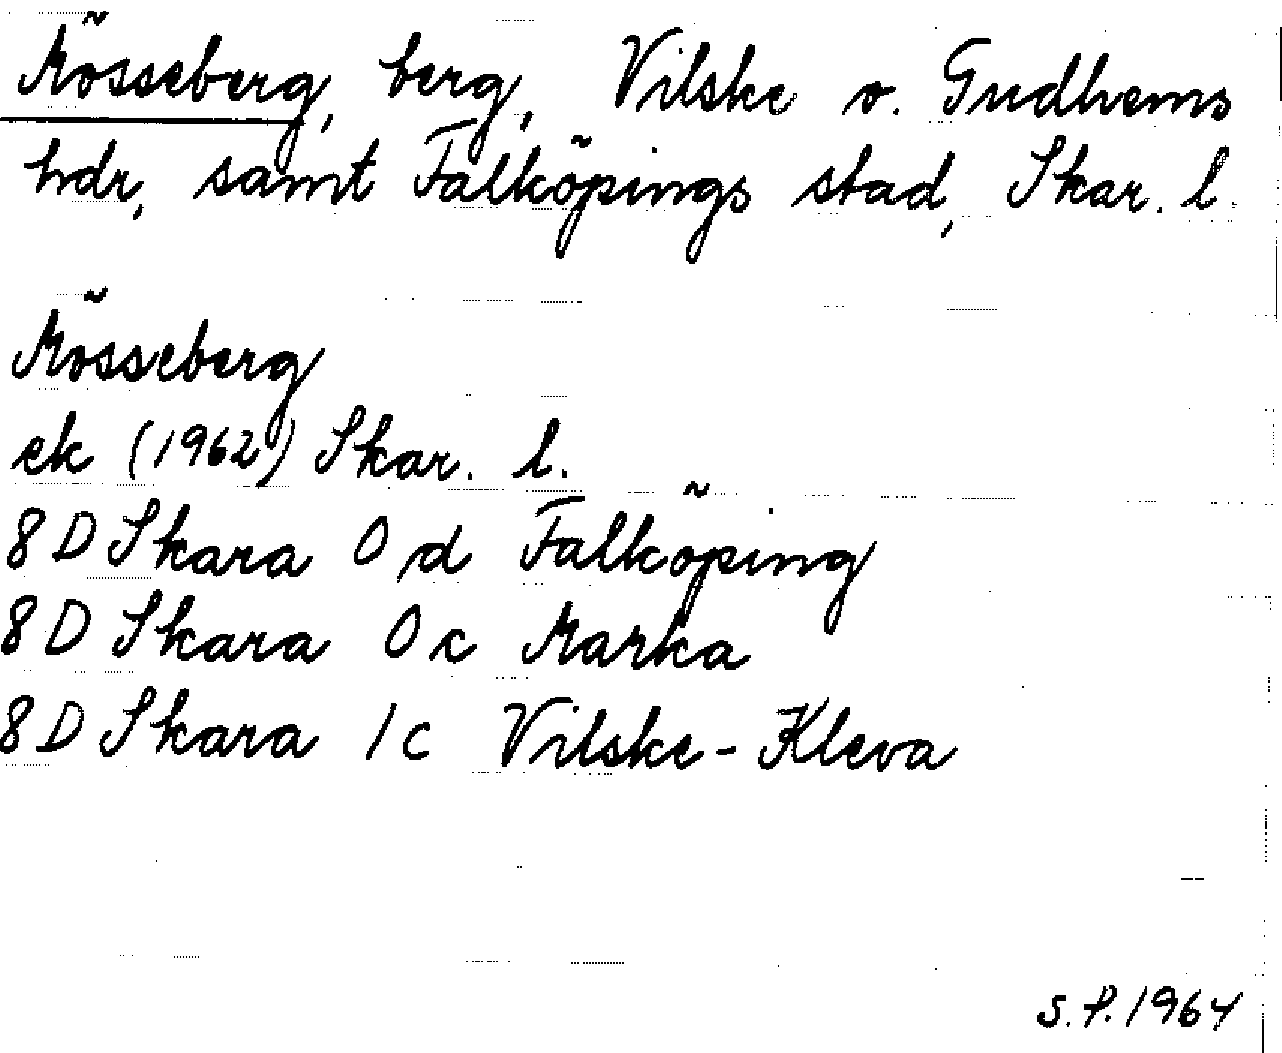 Mösseberg, berg, Vilske o. Gudhems
hdr, samt Falköpings stad, Skar. l.
Mösseberg
ek (1962) Skar. l.
8 D Skara 0 d Falköping
8 D Skara 0 c Marka
8 D Skara 1 c Vilske-Kleva
S.P. 1964